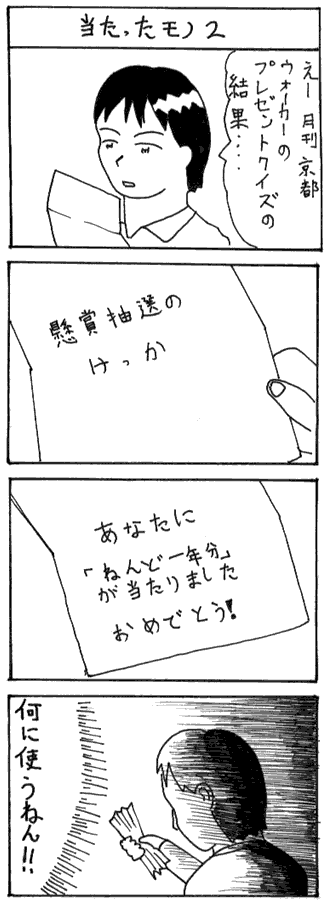 当たったモノ2
えー 月刊 京都
ウォーカーの
プレゼントクイズの
結果････
懸賞抽選の
けっか
あなたに
「ねんど一年分」
が当たりました
おめでとう!
何に使うねん!!